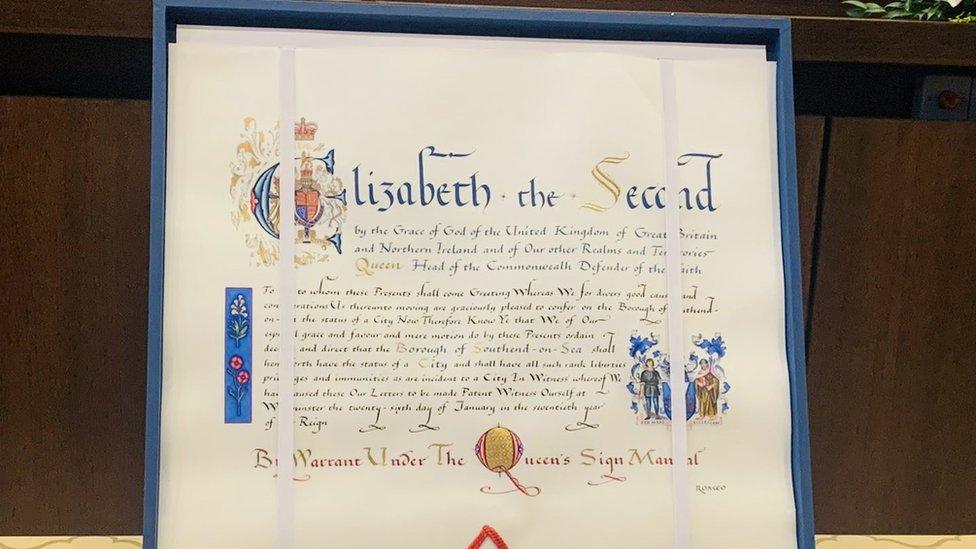 Elizabeth · the · Second
by the Grace of God of the United Kingdom of Great Britain
and Northern Ireland and of Our other Realms and Territories
Queen Head of the Commonwealth Defender of the Faith
To to whom these Presents shall come Greeting Whereas We for divers good causes and
considerations Us thereunto moving are graciously pleased to confer on the Borough of Southend-
on- the status of a City Now Therefore Know Ye that We of Our
especial grace and favour and mere motion do by these Presents ordain
declare and direct that the Borough of Southend-on-Sea shall
henceforth have the status of a City and shall have all such rank liberties
privileges and immunities as are incident to a City In Witness whereof We
have caused these Our Letters to be made Patent Witness Ourself at
Westminster the twenty-sixth day of January in the seventieth year
of Reign
By Warrant Under The Queen's Sign Manual
ROMEO